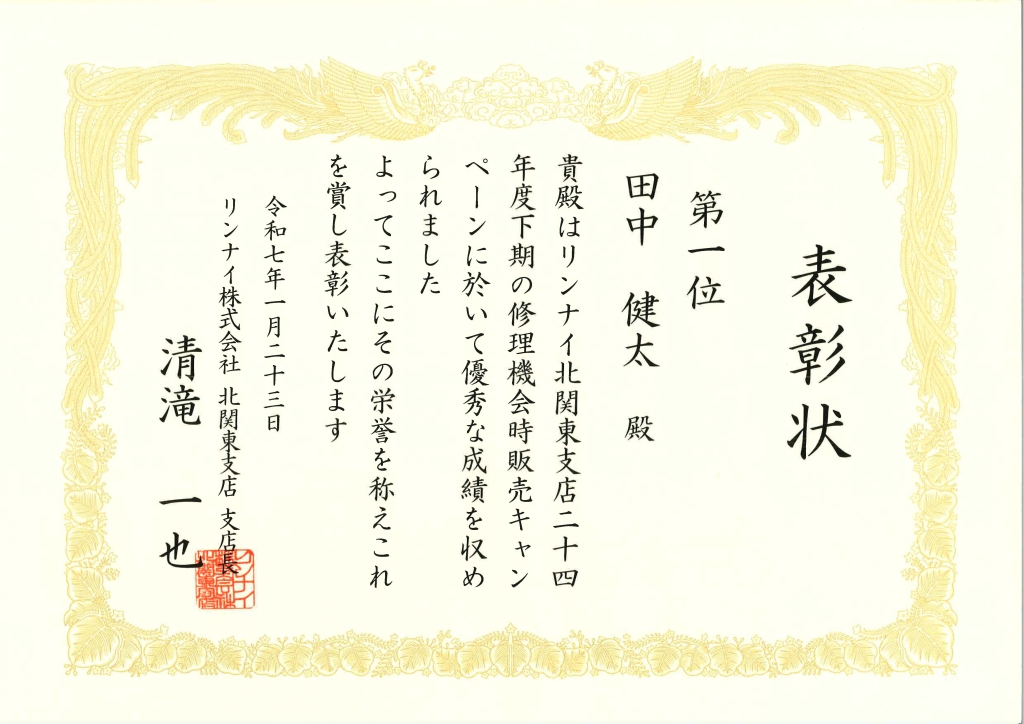 表彰状
第一位
田中 健太 殿
貴殿はリンナイ北関東支店二十四
年度下期の修理機会時販売キャン
ペーンに於いて優秀な成績を収め
られました
よってここにその栄誉を称えこれ
を賞し表彰いたします
令和七年一月二十三日
リンナイ株式会社 北関東支店 支店長
清滝 一也